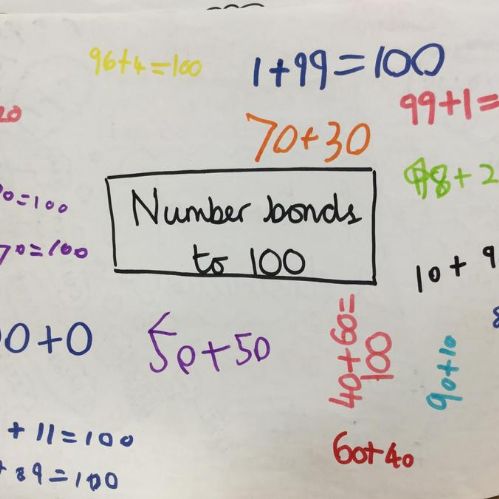 96+4=100
1+99=100
20
99+1=
70+30
98+2
0=100
Number bonds
to 100
70=100
10+9
00+0
50+50
40+60=
100
90+10
+11=100
+89=100
60+40